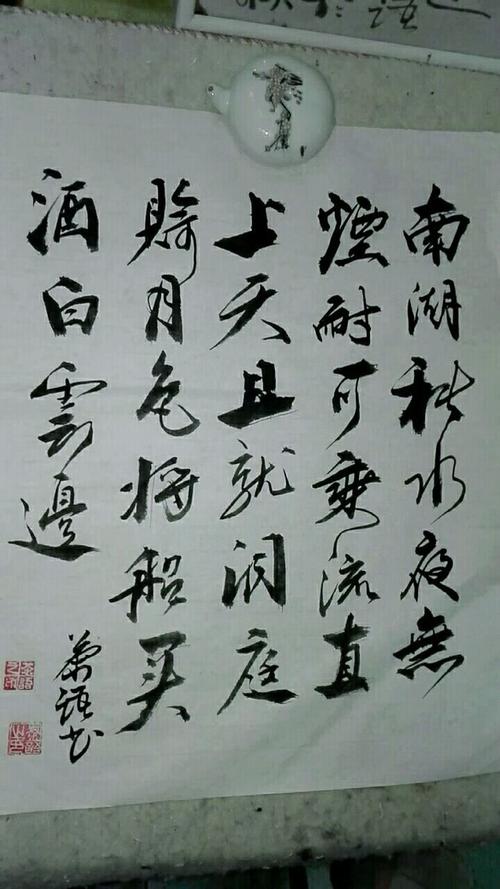 南湖秋水夜無
煙耐可乘流直
上天且就洞庭
賒月色将船买
酒白雲邊